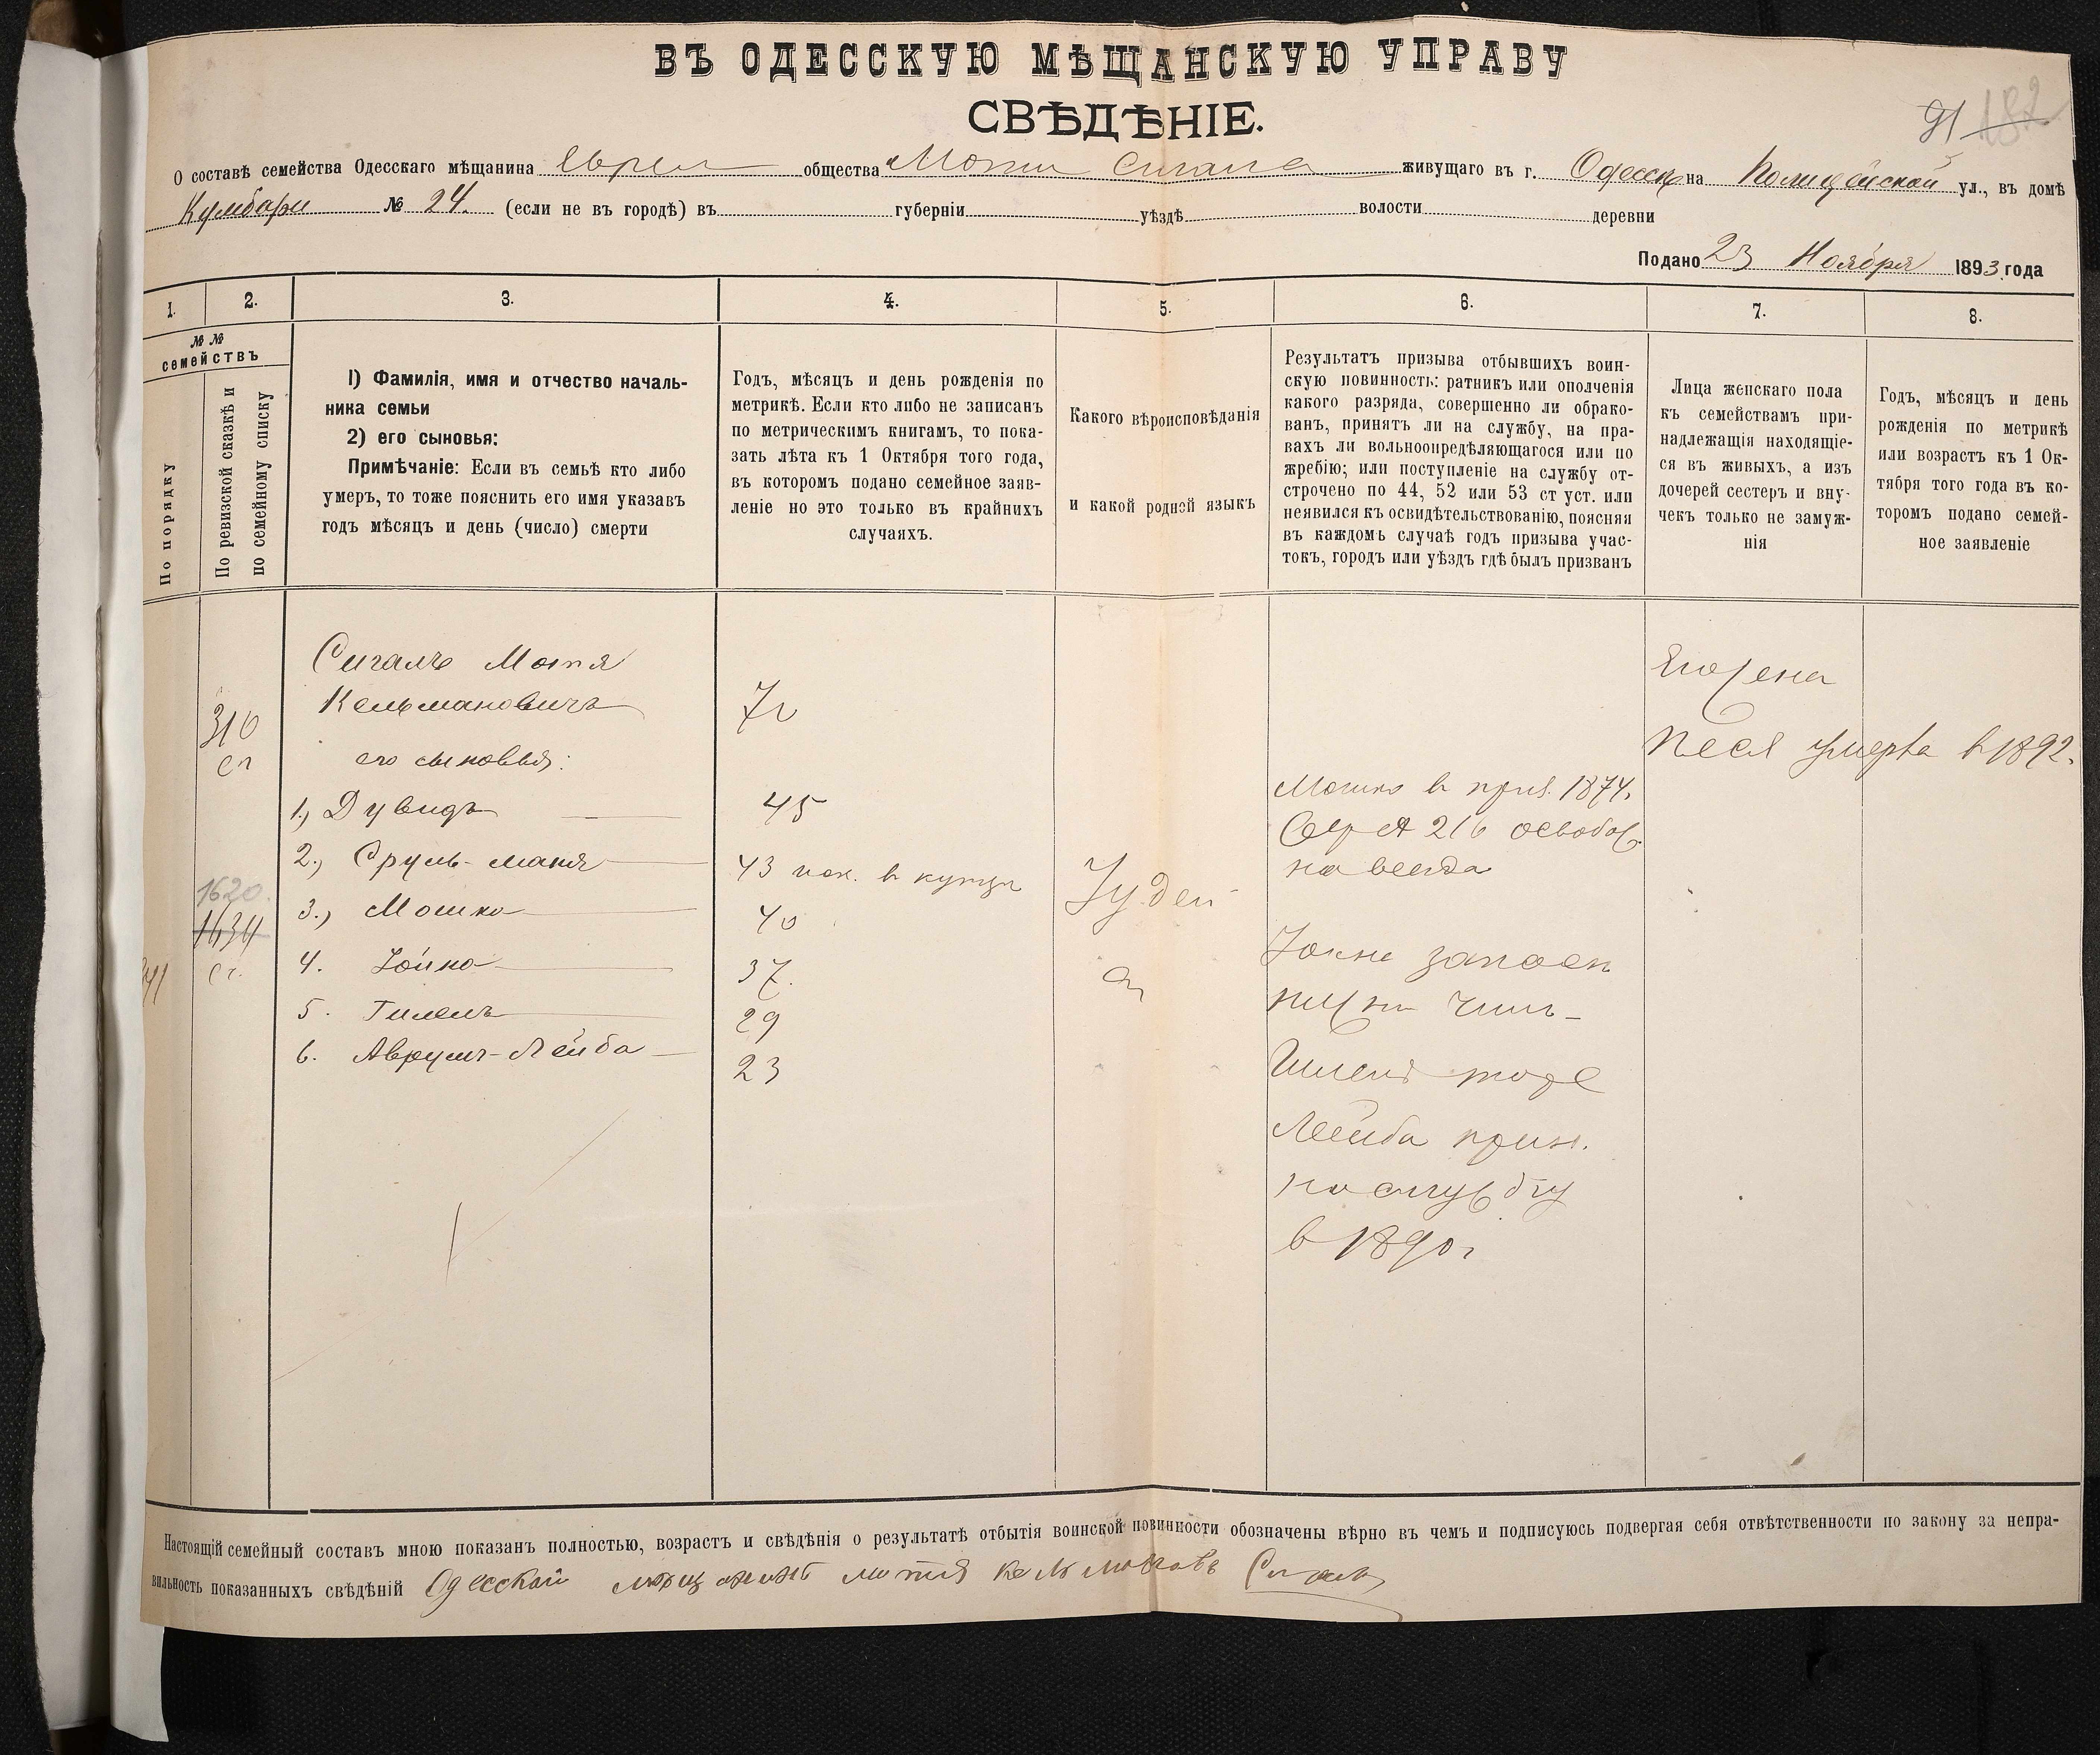 ВЪ ОДЕССКУЮ МѢЩАНСКУЮ УПРАВУ
СВѢДѢНІЕ.
91 182
О составѣ семейства Одесскаго мѣщанина еврея общества Моти Сигала живущаго въ г. Одессѣ на Полицейской ул., въ домѣ
Кумбари № 24. (если не въ городѣ) въ губерніи уѣздѣ волости деревни
Подано 23 Ноября 1893 года
1. 2. 3. 4. 5. 6. 7. 8.
№ №
семействъ
По порядку
По ревизской сказкѣ и
по семейному списку
1) Фамилія, имя и отчество началь-
ника семьи
2) его сыновья:
Примѣчаніе: Если въ семьѣ кто либо
умеръ, то тоже пояснить его имя указавъ
годъ мѣсяцъ и день (число) смерти
Годъ, мѣсяцъ и день рожденія по
метрикѣ. Если кто либо не записанъ
по метрическимъ книгамъ, то пока-
зать лѣта къ 1 Октября того года,
въ которомъ подано семейное заяв-
леніе но это только въ крайнихъ
случаяхъ.
Какого вѣроисповѣданія
и какой родной языкъ
Результатъ призыва отбывшихъ воин-
скую повинность: ратникъ или ополченія
какого разряда, совершенно ли обрако-
ванъ, принятъ ли на службу, на пра-
вахъ ли вольноопредѣляющагося или по
жребію; или поступленіе на службу от-
строчено по 44, 52 или 53 ст уст. или
неявился къ освидѣтельствованію, поясняя
въ каждомъ случаѣ годъ призыва учас-
токъ, городъ или уѣздъ гдѣ былъ призванъ
Лица женскаго пола
къ семействамъ при-
надлежащія находящіе-
ся въ живыхъ, а изъ
дочерей сестеръ и вну-
чекъ только не замуж-
нія
Годъ, мѣсяцъ и день
рожденія по метрикѣ
или возрастъ къ 1 Ок-
тября того года въ ко-
торомъ подано семей-
ное заявленіе
310
1620.
1634
Сигалъ Мотя
Кельмановичъ
его сыновья:
1.) Дувидъ
2.) Сруль-маня
3.) Мошко
4. Іойно
5. Гилель
6. Аврумъ-Лейба
70
45
43
40
37.
29
23
Іудей
Мошко в приз. 1874.
216 освобож.
на всегда
запасн
Гилель тоже
Лейба прин.
на службу
в 1890 г
Его жена
Песя умерла в 1892.
Настоящій семейный составъ мною показанъ полностью, возрастъ и свѣдѣнія о результатѣ отбытія воинской повинности обозначены вѣрно въ чемъ и подписуюсь подвергая себя отвѣтственности по закону за непра-
вильность показанныхъ свѣдѣній Одесской мѣщанинъ мотя Сигалъ